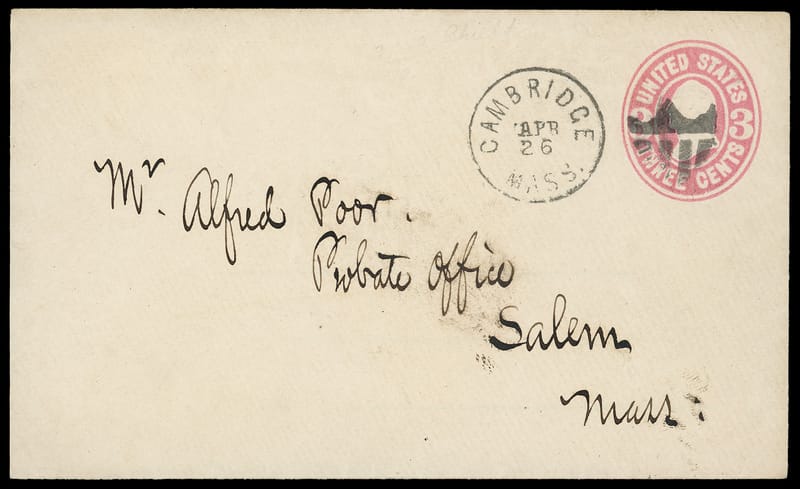 CAMBRIDGE
APR
26
MASS.
UNITED STATES
3
THREE CENTS
Mr. Alfred Poor.
Probate Office
Salem
Mass: